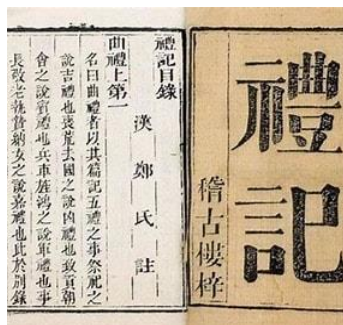 禮記
稽古樓梓
禮記目錄
漢鄭氏註
曲禮上第一
名曰曲禮者以其篇記五禮之事祭祀之
說吉禮也喪荒去國之說凶禮也致貢朝
會之說賓禮也兵車旌鴻之說軍禮也事
長敬老執贄納女之說嘉禮也此於別錄